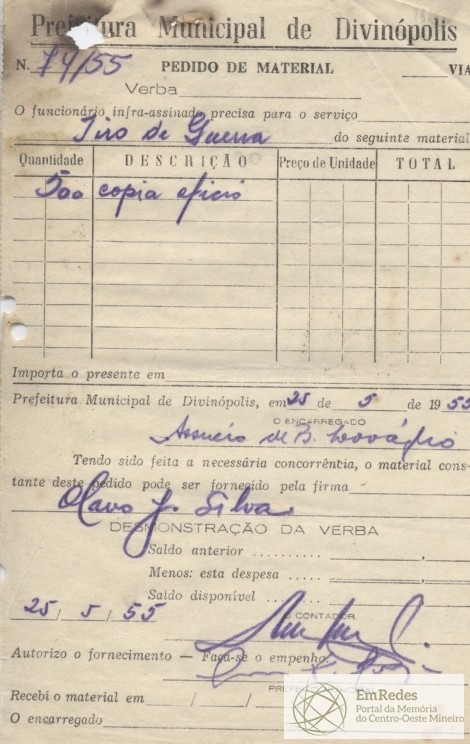 Prefeitura Municipal de Divinópolis
N. 74/55 PEDIDO DE MATERIAL VIA
Verba
O funcionário infra-assinado precisa para o serviço
Tiro de Guerra do seguinte material
Quantidade DESCRIÇÃO Preço de Unidade TOTAL
500 copia oficio
Importa o presente em
Prefeitura Municipal de Divinópolis, em 25 de 5 de 1955
O ENCARREGADO
de B.
Tendo sido feita a necessária concorrência, o material cons-
tante deste pedido pode ser fornecido pela firma
Olavo J. Silva
DESMONSTRAÇÃO DA VERBA
Saldo anterior ..........
Menos: esta despesa .....
Saldo disponível ........
25/5/55
CONTADOR
Autorizo o fornecimento — Faça-se o empenho.
Recebí o material em / /
O encarregado
EmRedes
Portal da Memória
do Centro-Oeste Mineiro